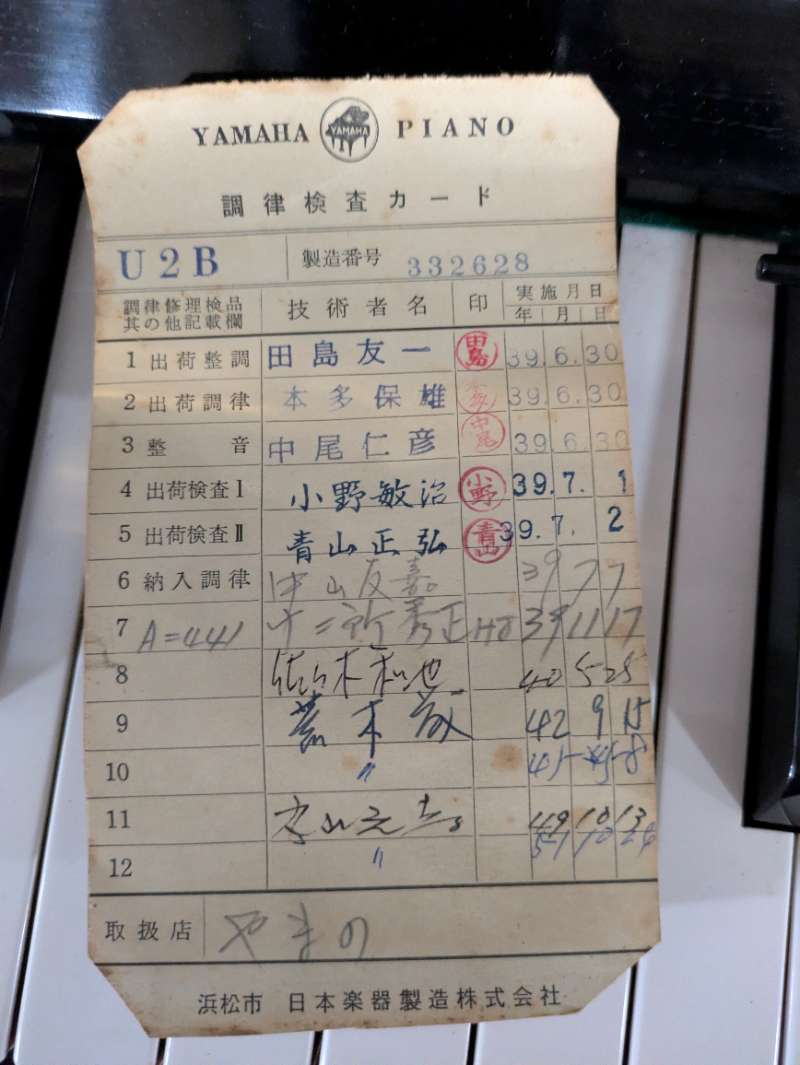 YAMAHA YAMAHA PIANO
調律検査カード
U2B 製造番号 332628
調律修理検品 技術者名 印 実施月日
其の他記載欄 年 月 日
1 出荷整調 田島友一 田島 39.6.30
2 出荷調律 本多保雄 本多 39.6.30
3 整音 中尾仁彦 中尾 39.6.30
4 出荷検査Ⅰ 小野敏治 小野 39.7.1
5 出荷検査Ⅱ 青山正弘 青山 39.7.2
6 納入調律 中山友嘉 39 7 7
7 A=441 39 11 17
8 佐々木和也 40 5 25
9 荒木 42 9 15
10 〃 45 8
11 49 10 13
12 〃 51 10
取扱店 やまの
浜松市 日本楽器製造株式会社